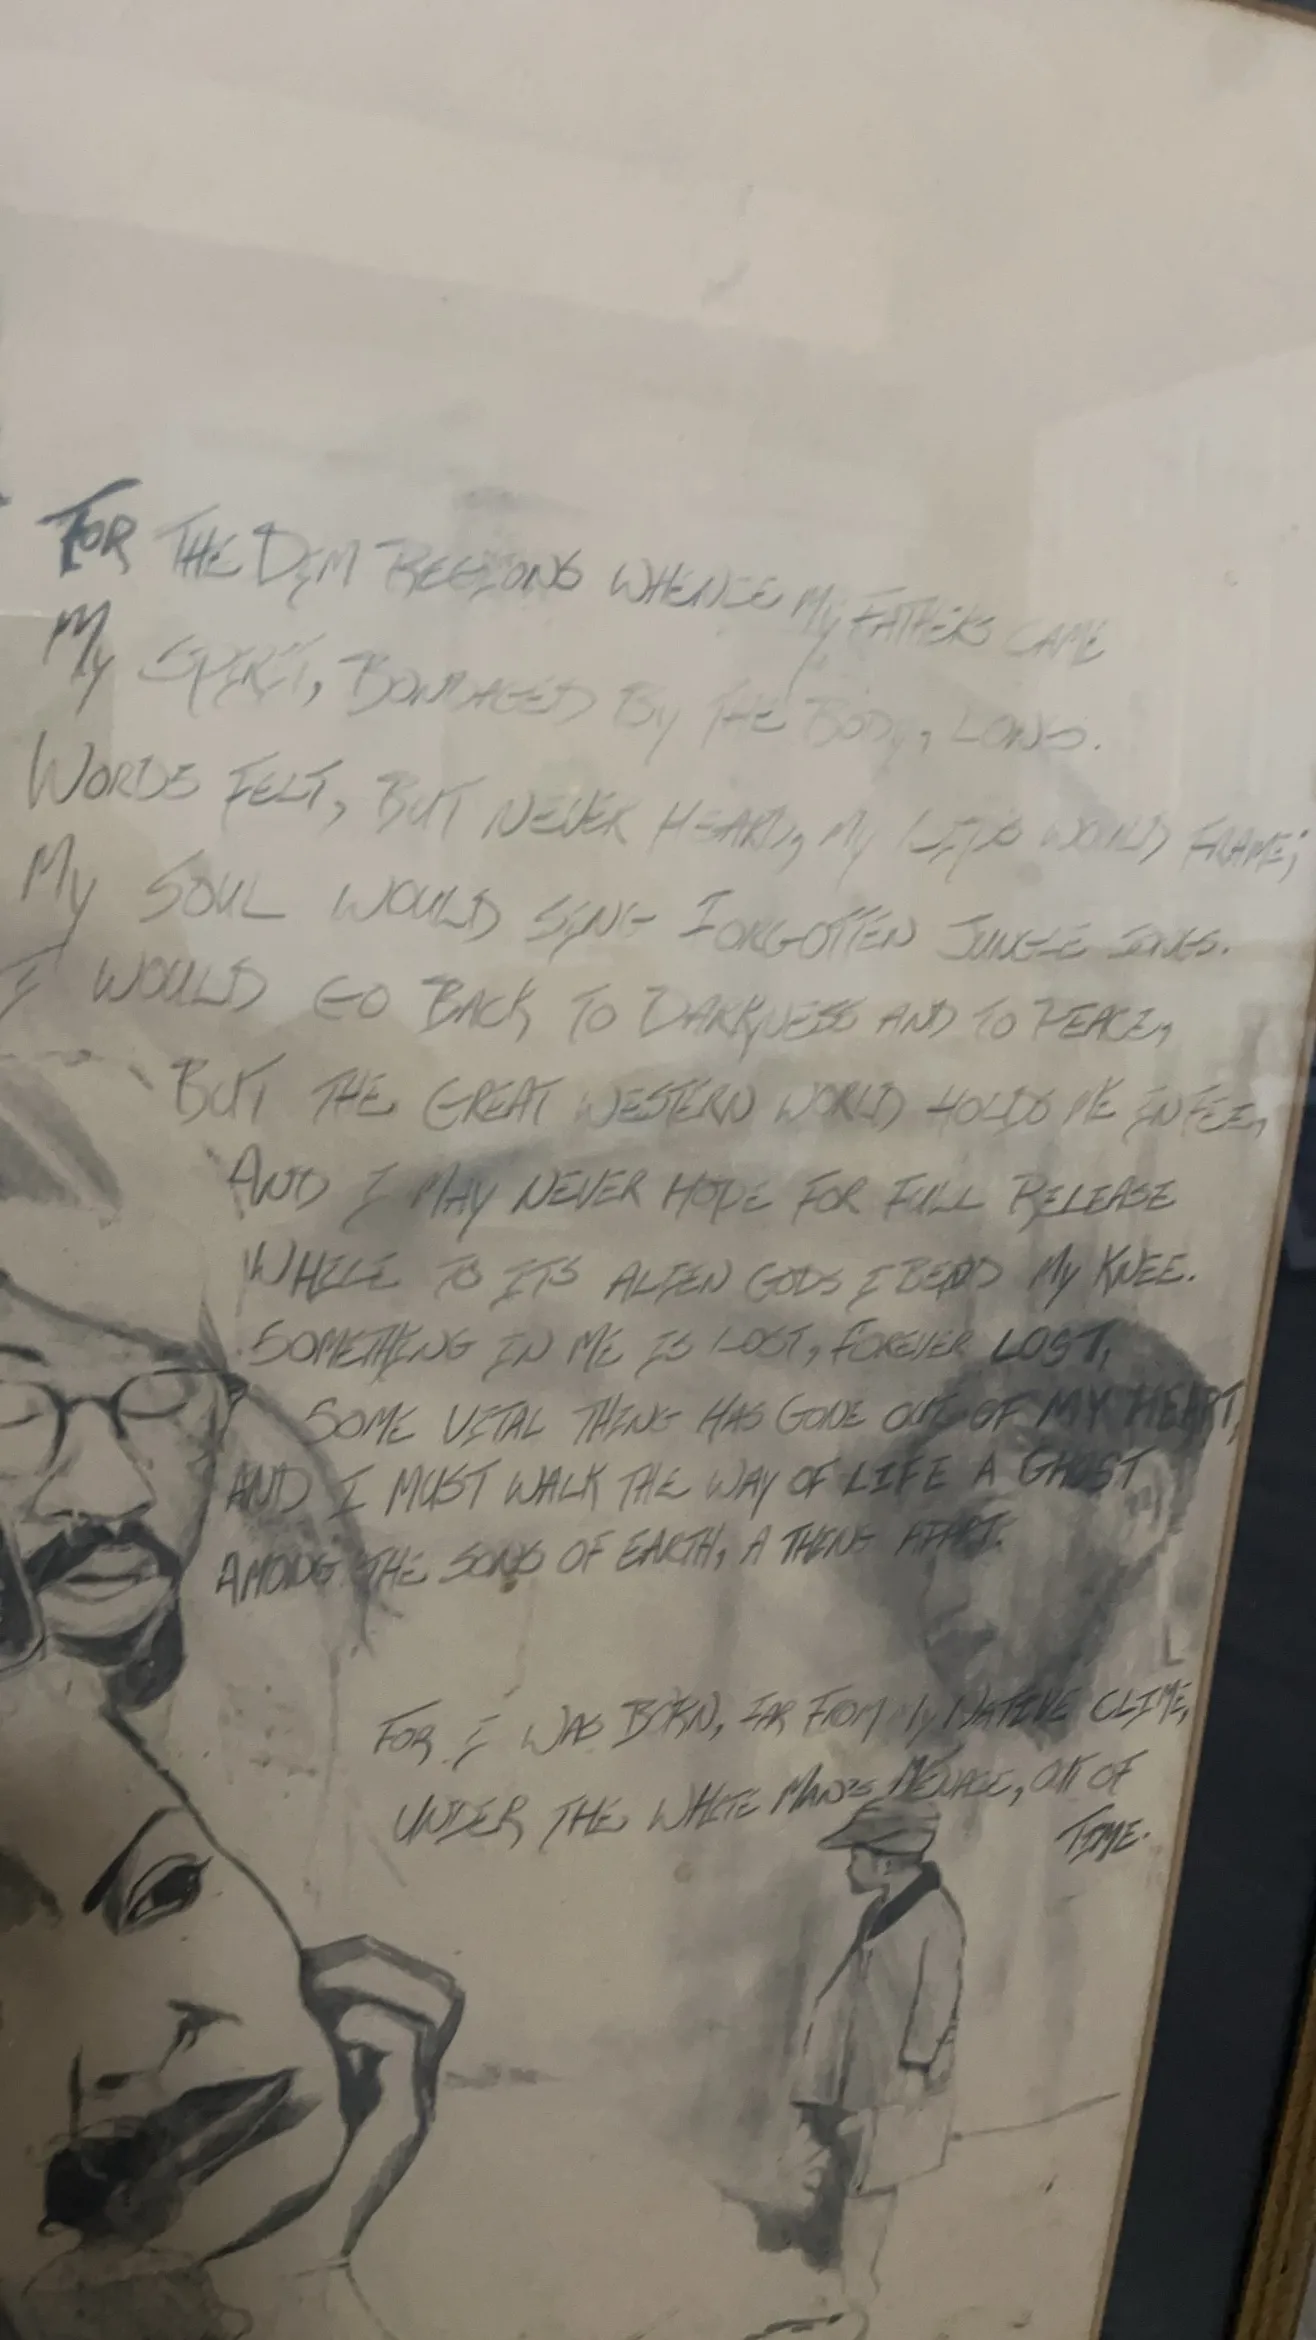 FOR THE DIM REGIONS WHENCE MY FATHERS CAME
MY SPIRIT, BONDAGED BY THE BODY, LONGS.
WORDS FELT, BUT NEVER HEARD, MY LIPS WOULD FRAME;
MY SOUL WOULD SING FORGOTTEN JUNGLE SONGS.
I WOULD GO BACK TO DARKNESS AND TO PEACE,
BUT THE GREAT WESTERN WORLD HOLDS ME IN FEE,
AND I MAY NEVER HOPE FOR FULL RELEASE
WHILE TO ITS ALIEN GODS I BEND MY KNEE.
SOMETHING IN ME IS LOST, FOREVER LOST,
SOME VITAL THING HAS GONE OUT OF MY HEART,
AND I MUST WALK THE WAY OF LIFE A GHOST
AMONG THE SONS OF EARTH, A THING APART.
FOR I WAS BORN, FAR FROM MY NATIVE CLIME,
UNDER THE WHITE MAN'S MENACE, OUT OF
TIME.